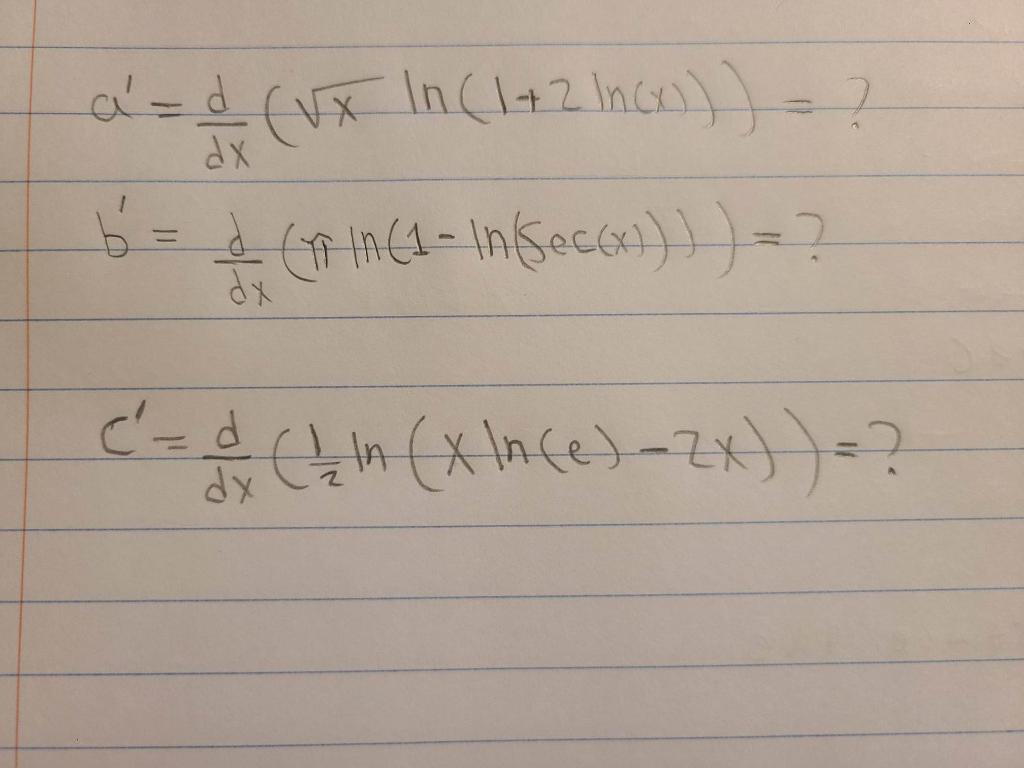 a' = d/dx (√x ln(1+2 ln(x))) = ?
b' = d/dx (π ln(1 - ln(sec(x)))) = ?
c' = d/dx (1/2 ln(x ln(e) - 2x)) = ?